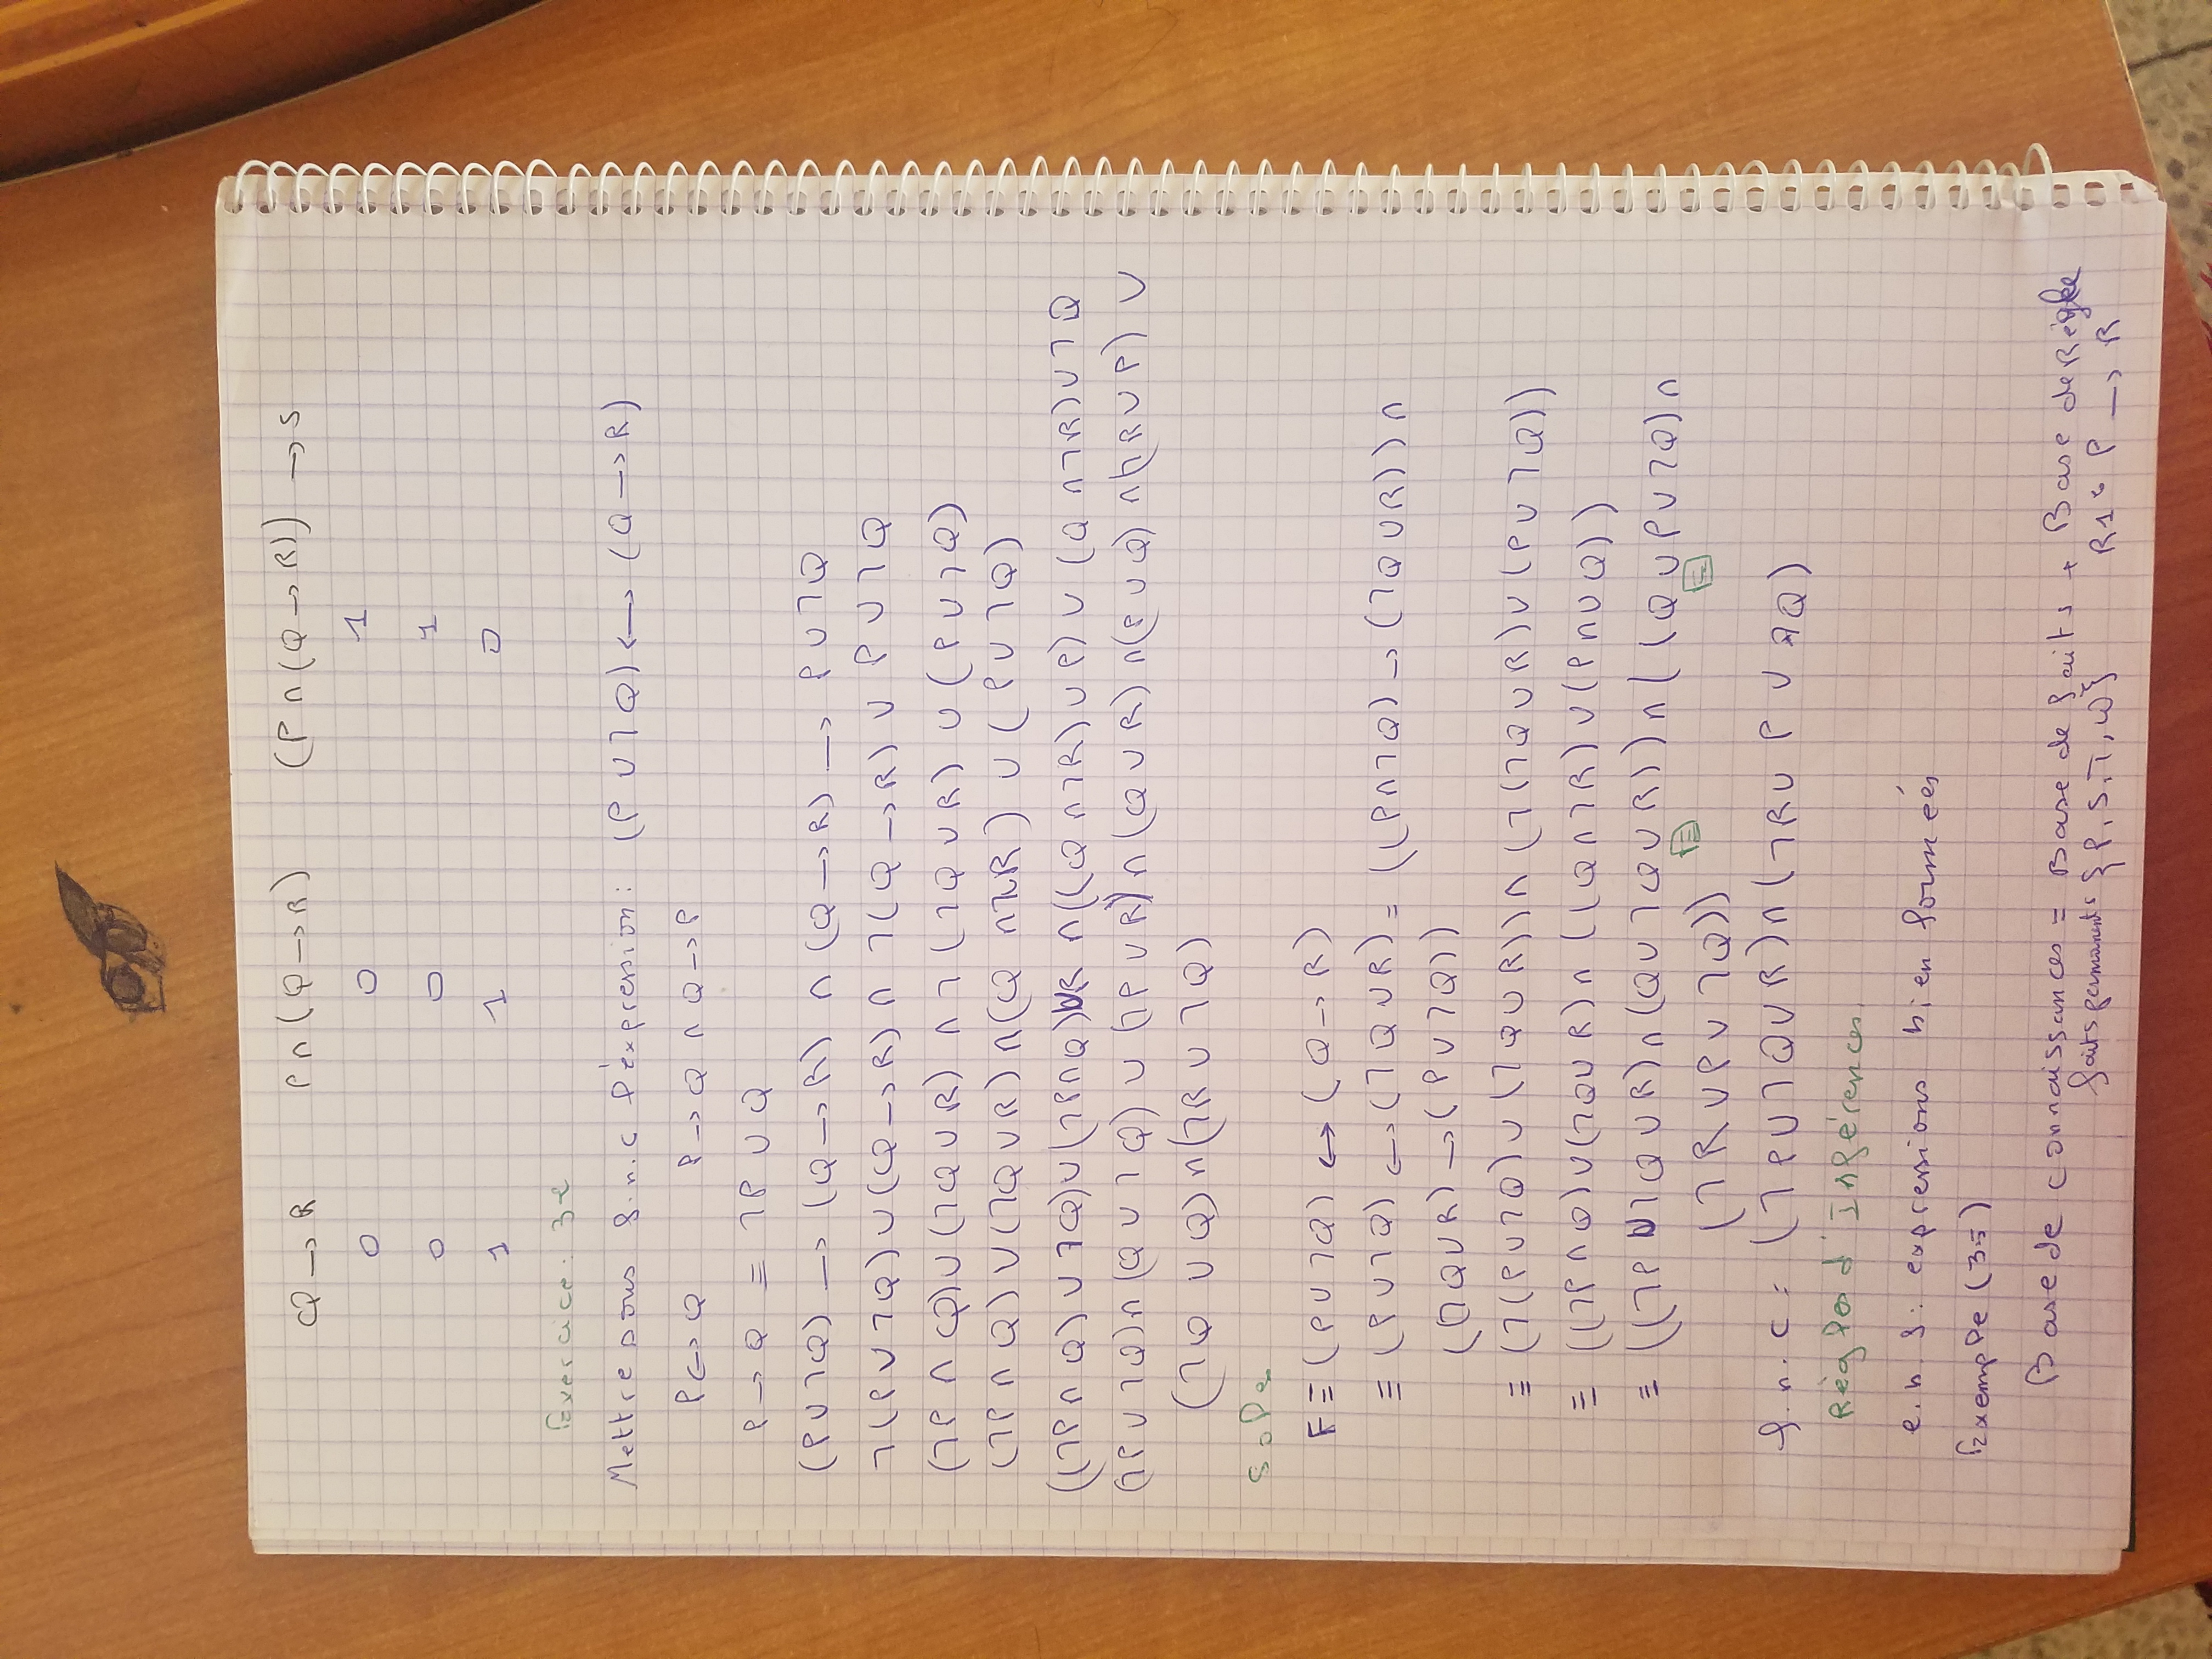 Q → R    P ∧ (Q → R)    (P ∧ (Q → R)) → S
0    0    1
0    0    1
1    1    0
Exercice: 3e
Mettre sous f.n.c l'expression: (P ∨ ⌐Q) ⟷ (Q → R)
P ↔ Q    P → Q ∧ Q → P
P → Q ≡ ⌐P ∨ Q
(P ∨ ⌐Q) → (Q → R) ∧ (Q → R) → P ∨ ⌐Q
⌐(P ∨ ⌐Q) ∨ (Q → R) ∧ ⌐(Q → R) ∨ P ∨ ⌐Q
(⌐P ∧ Q) ∨ (⌐Q ∨ R) ∧ ⌐(⌐Q ∨ R) ∨ (P ∨ ⌐Q)
(⌐P ∧ Q) ∨ (⌐Q ∨ R) ∧ (Q ∧ ⌐R) ∨ (P ∨ ⌐Q)
((⌐P ∧ Q) ∨ ⌐Q) ∨ (⌐P ∧ Q) ∨ R ∧ ((Q ∧ ⌐R) ∨ P) ∨ (Q ∧ ⌐R) ∨ ⌐Q
(⌐P ∨ ⌐Q) ∧ (Q ∨ ⌐Q) ∨ (⌐P ∨ R) ∧ (Q ∨ R) ∧ (P ∨ Q) ∧ (⌐R ∨ P) ∨
(⌐Q ∨ Q) ∧ (⌐R ∨ ⌐Q)
Solª
F ≡ (P ∨ ⌐Q) ↔ (Q → R)
≡ (P ∨ ⌐Q) ↔ (⌐Q ∨ R) = ((P ∧ ⌐Q) → (⌐Q ∨ R)) ∧
(⌐Q ∨ R) → (P ∨ ⌐Q))
≡ (⌐(P ∨ ⌐Q) ∨ (⌐Q ∨ R)) ∧ (⌐(⌐Q ∨ R) ∨ (P ∨ ⌐Q))
≡ ((⌐P ∧ Q) ∨ (⌐Q ∨ R) ∧ ((Q ∧ ⌐R) ∨ (P ∧ ∨ Q))
≡ ((⌐P ∨ ⌐Q ∨ R) ∧ (Q ∨ ⌐Q ∨ R)) ∧ ((Q ∨ P ∨ ⌐Q) ∧
(⌐R ∨ P ∨ ⌐Q))
f.n.c : (⌐P ∨ ⌐Q ∨ R) ∧ (⌐R ∨ P ∨ ⌐Q)
Règles d'Inférences
e.b.f: expressions bien formées
Exemple (3
Base de connaissances = Base de faits + Base de Règle
faits permanents { P, S, T, W}    R1: P → R